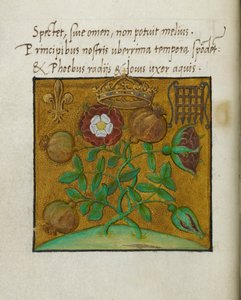 Spectet, siue omen, non potuit melius.
Principibus nostris uberrima tempora spondet
& Phoebus radijs & Iouis uxor aquis.